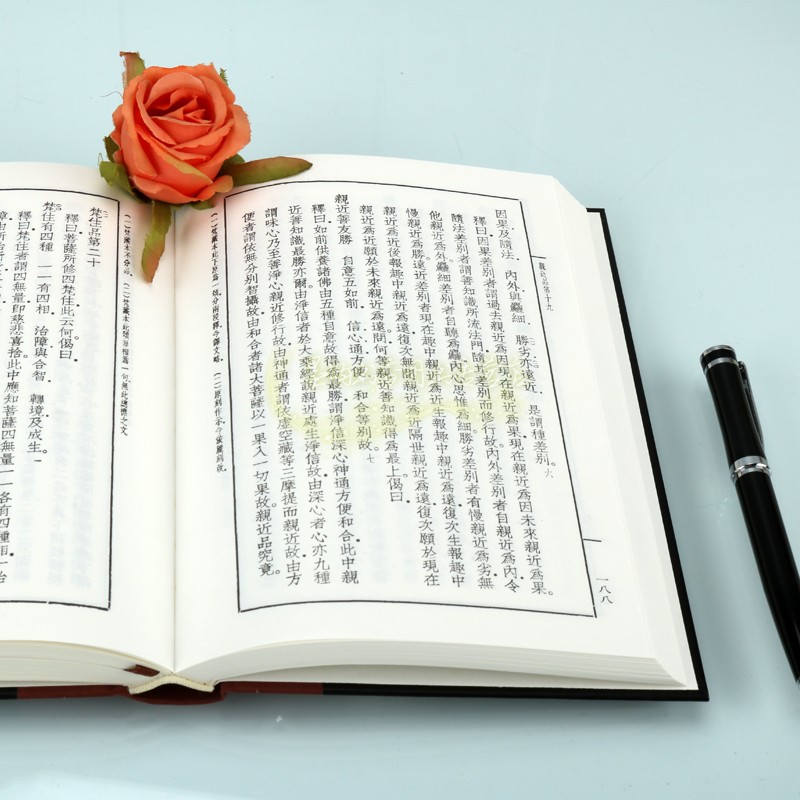 親近品第十九
一八八
因果及隨法　內外與麤細　勝劣亦遠近　是謂種差別。六
釋曰因果差別者謂過去親近爲因現在親近爲果現在親近爲因未來親近爲果。
隨法差別者謂善知識所流法門隨其差別而修行故內外差別者自親近爲內令
他親近爲外麤細差別者自聽爲麤內心思惟爲細勝劣差別者有慢親近爲劣無
慢親近爲勝遠近差別者現在趣中親近爲近生報趣中親近爲遠復次生報趣中
親近爲近後報趣中親近爲遠復次無間親近爲近隔世親近爲遠復次願於現在
親近爲近願於未來親近爲遠問何等親近善知識得爲最上偈曰
親近善友勝　自意五如前　信心通方便　和合等別故。七
釋曰如前供養諸佛由五種自意故得爲最勝謂淨信深心神通方便和合此中親
近善知識最勝亦爾由淨信者於大乘經說親近處生淨信故由深心者心亦九種
謂味心乃至善淨心親近修行故由神通者謂依虛空藏等三摩提而親近故由方
便者謂依無分別智攝故由和合者諸大菩薩以一果入一切果故親近品究竟。
梵住品第二十
釋曰菩薩所修四梵住此云何偈曰
梵住有四種　一一有四相　治障與合智　轉境及成生。一
釋曰梵住者謂四無量即慈悲喜捨此中應知菩薩四無量一一各有四種相一治